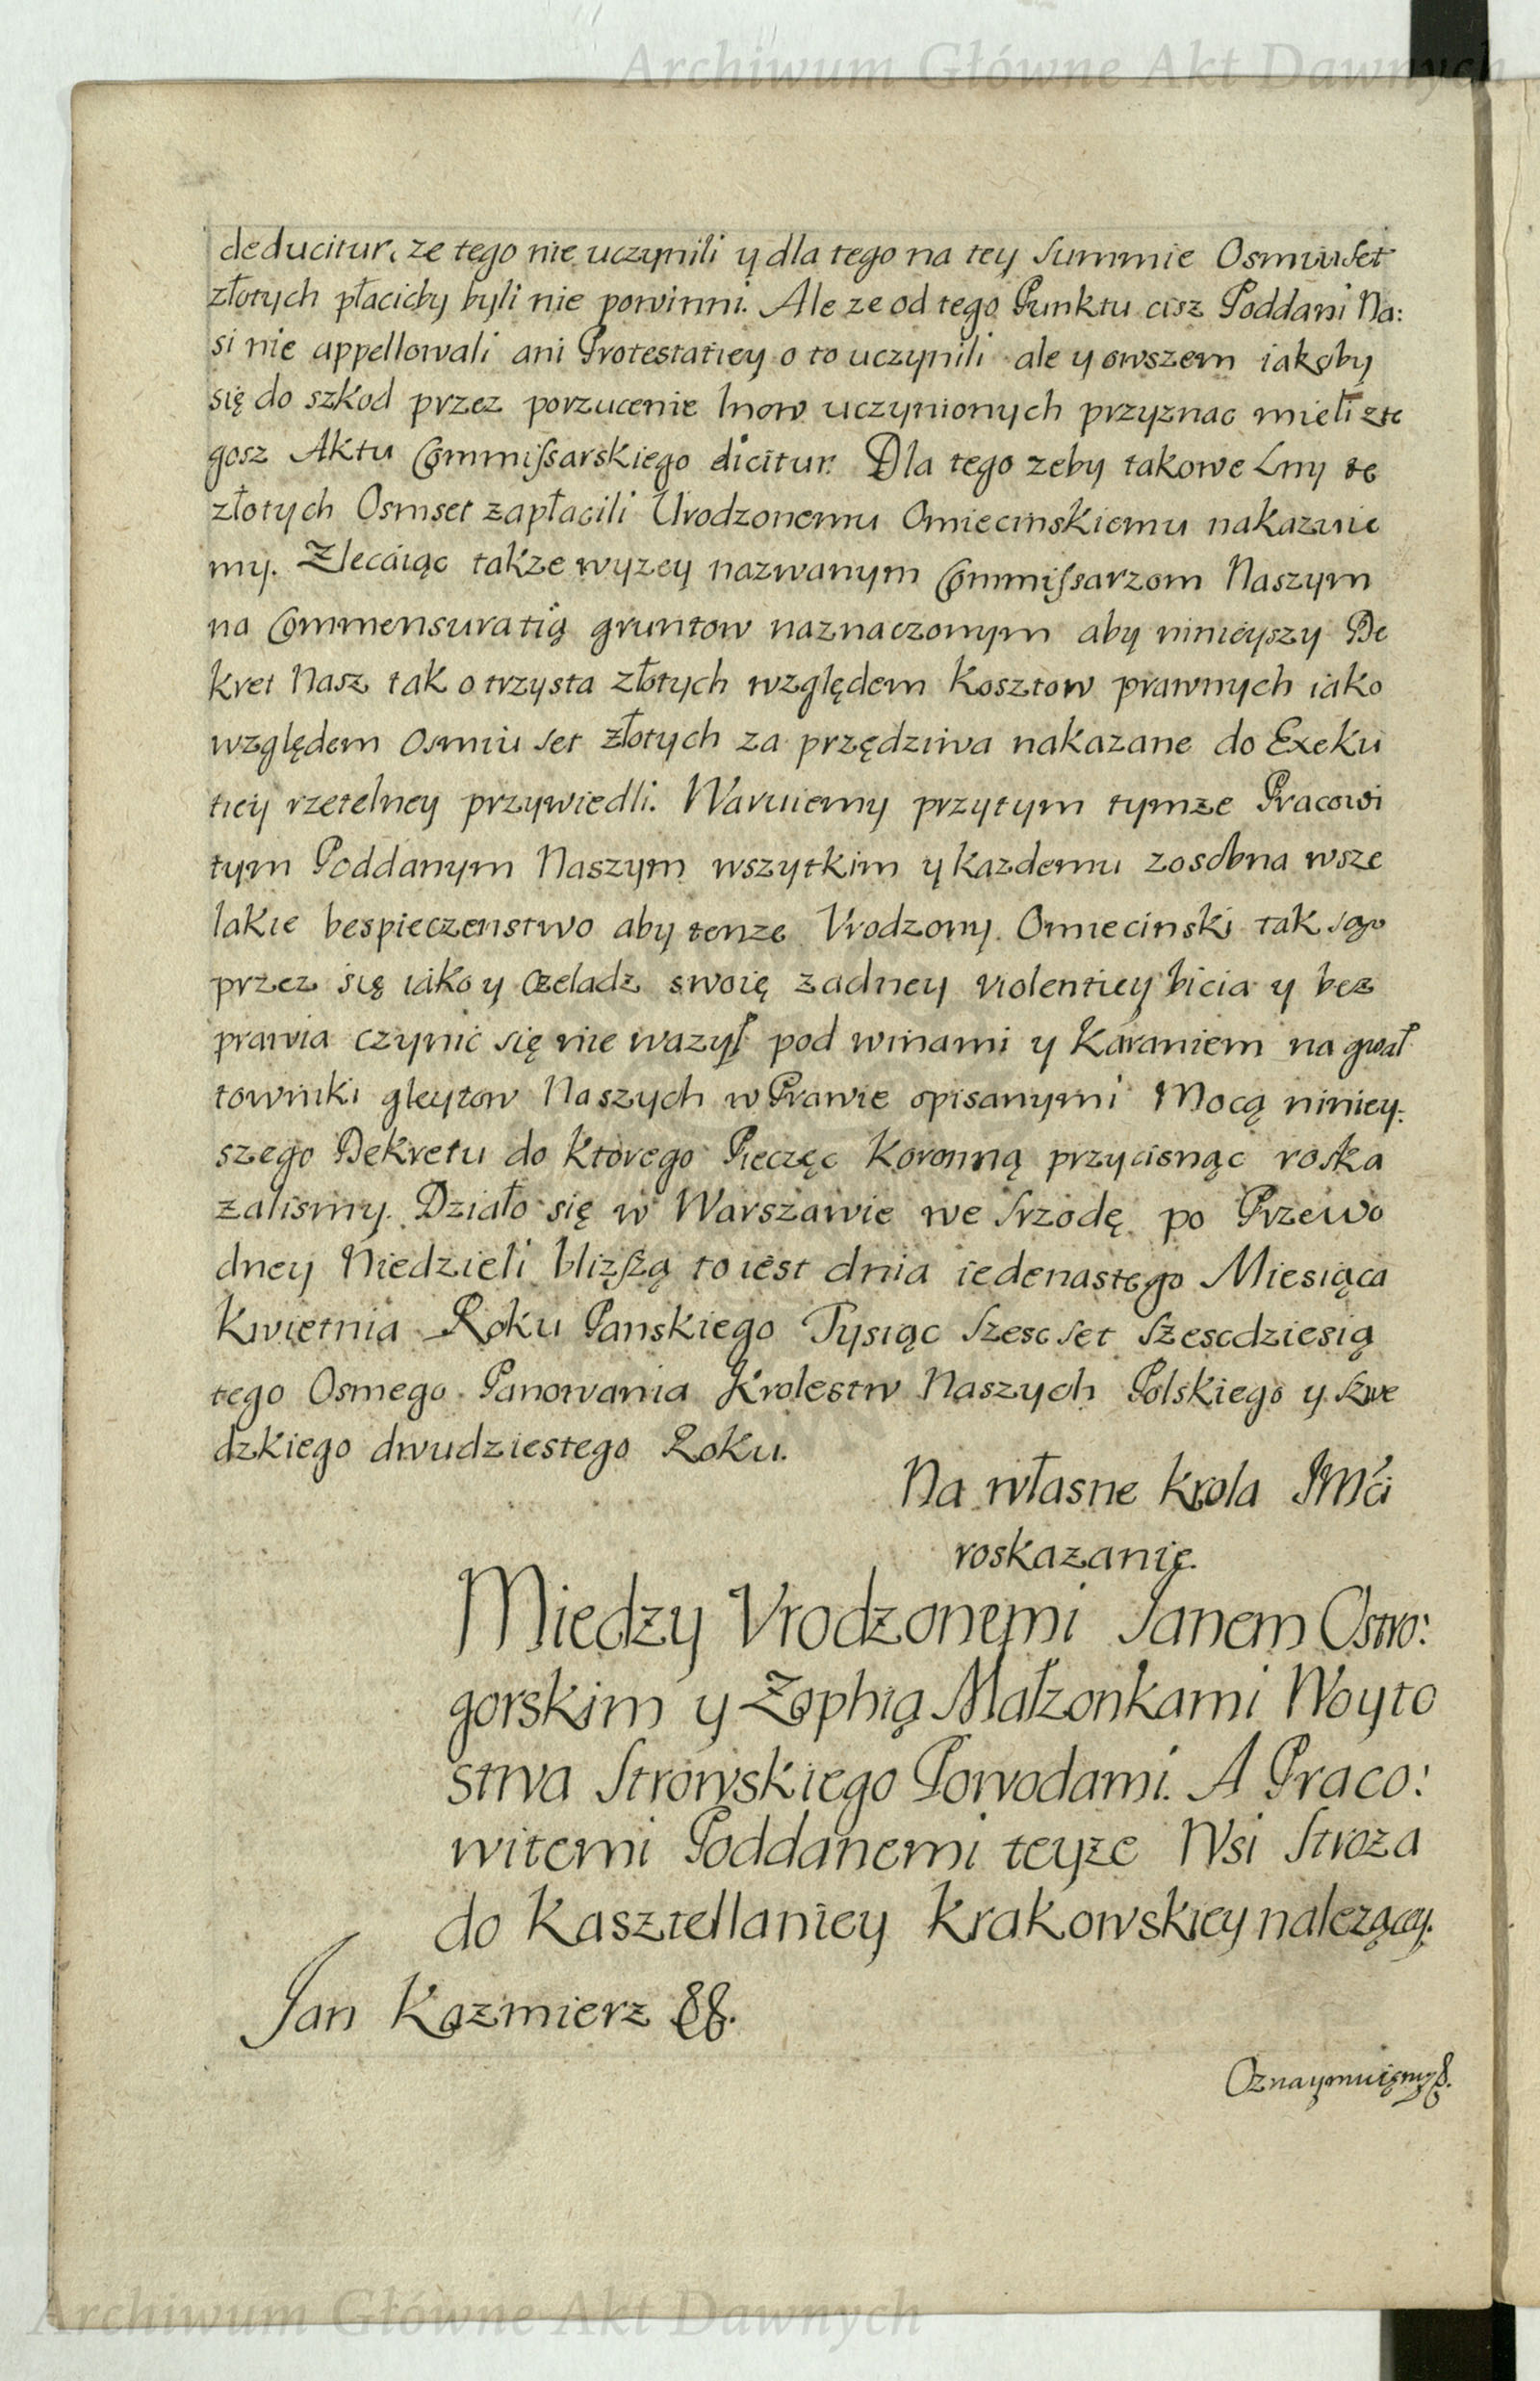 Archiwum Główne Akt Dawnych
deducitur, ze tego nie uczynili y dla tego na tey summie Osmiuset
złotych płacicby byli nie powinni. Ale ze od tego Punktu cisz Poddani Na:
si nie appellowali ani Protestatiey o to uczynili ale y owszem iakoby
się do szkod przez porzucenie lnow uczynionych przyznac mieli zte
gosz Aktu Commissarskiego dicitur. Dla tego zeby takowe Lny te
złotych Osmset zapłacili Urodzonemu Omiecinskiemu nakazuie
my. Zlecaiąc takze wyzey nazwanym Commissarzom Naszym
na Commensuratią gruntow naznaczonym aby ninieyszy De
kret Nasz tak o trzysta złotych względem Kosztow prawnych iako
względem Osmiu set złotych za przędziwa nakazane do Exeku
tiey rzetelney przywiedli. Waruiemy przytym tymze Pracowi
tym Poddanym Naszym wszytkim y kazdemu zosobna wsze
lakie bespieczenstwo aby tenze Vrodzony Omiecinski tak sam
przez się iako y czeladz swoię zadney violentiey bicia y bez
prawia czynic się nie wazył pod winami y Karaniem na gwał
towniki gleytow Naszych w Prawie opisanymi Mocą niniey:
szego Dekretu do Ktorego Pieczęc Koronną przycisnąc roska
zalismy. Działo się w Warszawie we Srzodę po Przewo
dney Niedzieli blizszą to iest dnia iedenastego Miesiąca
Kwietnia Roku Panskiego Tysiąc Szesc set Szescdziesią
tego Osmego Panowania Krolestw Naszych Polskiego y Szwe
dzkiego dwudziestego Roku.
Na własne Krola JMci
roskazanie.
Miedzy Vrodzonemi Janem Ostro:
gorskim y Zophią Małzonkami Woyto
stwa Strowskiego Powodami. A Praco:
witemi Poddanemi teyze Wsi Stroza
do Kasztellaniey Krakowskiey nalezącey.
Jan Kazmierz &&.
Oznaymuiemy &.
Archiwum Główne Akt Dawnych